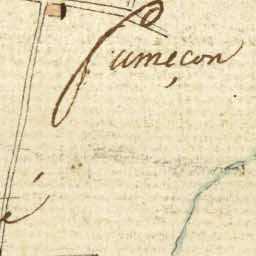 Fumeçon
é